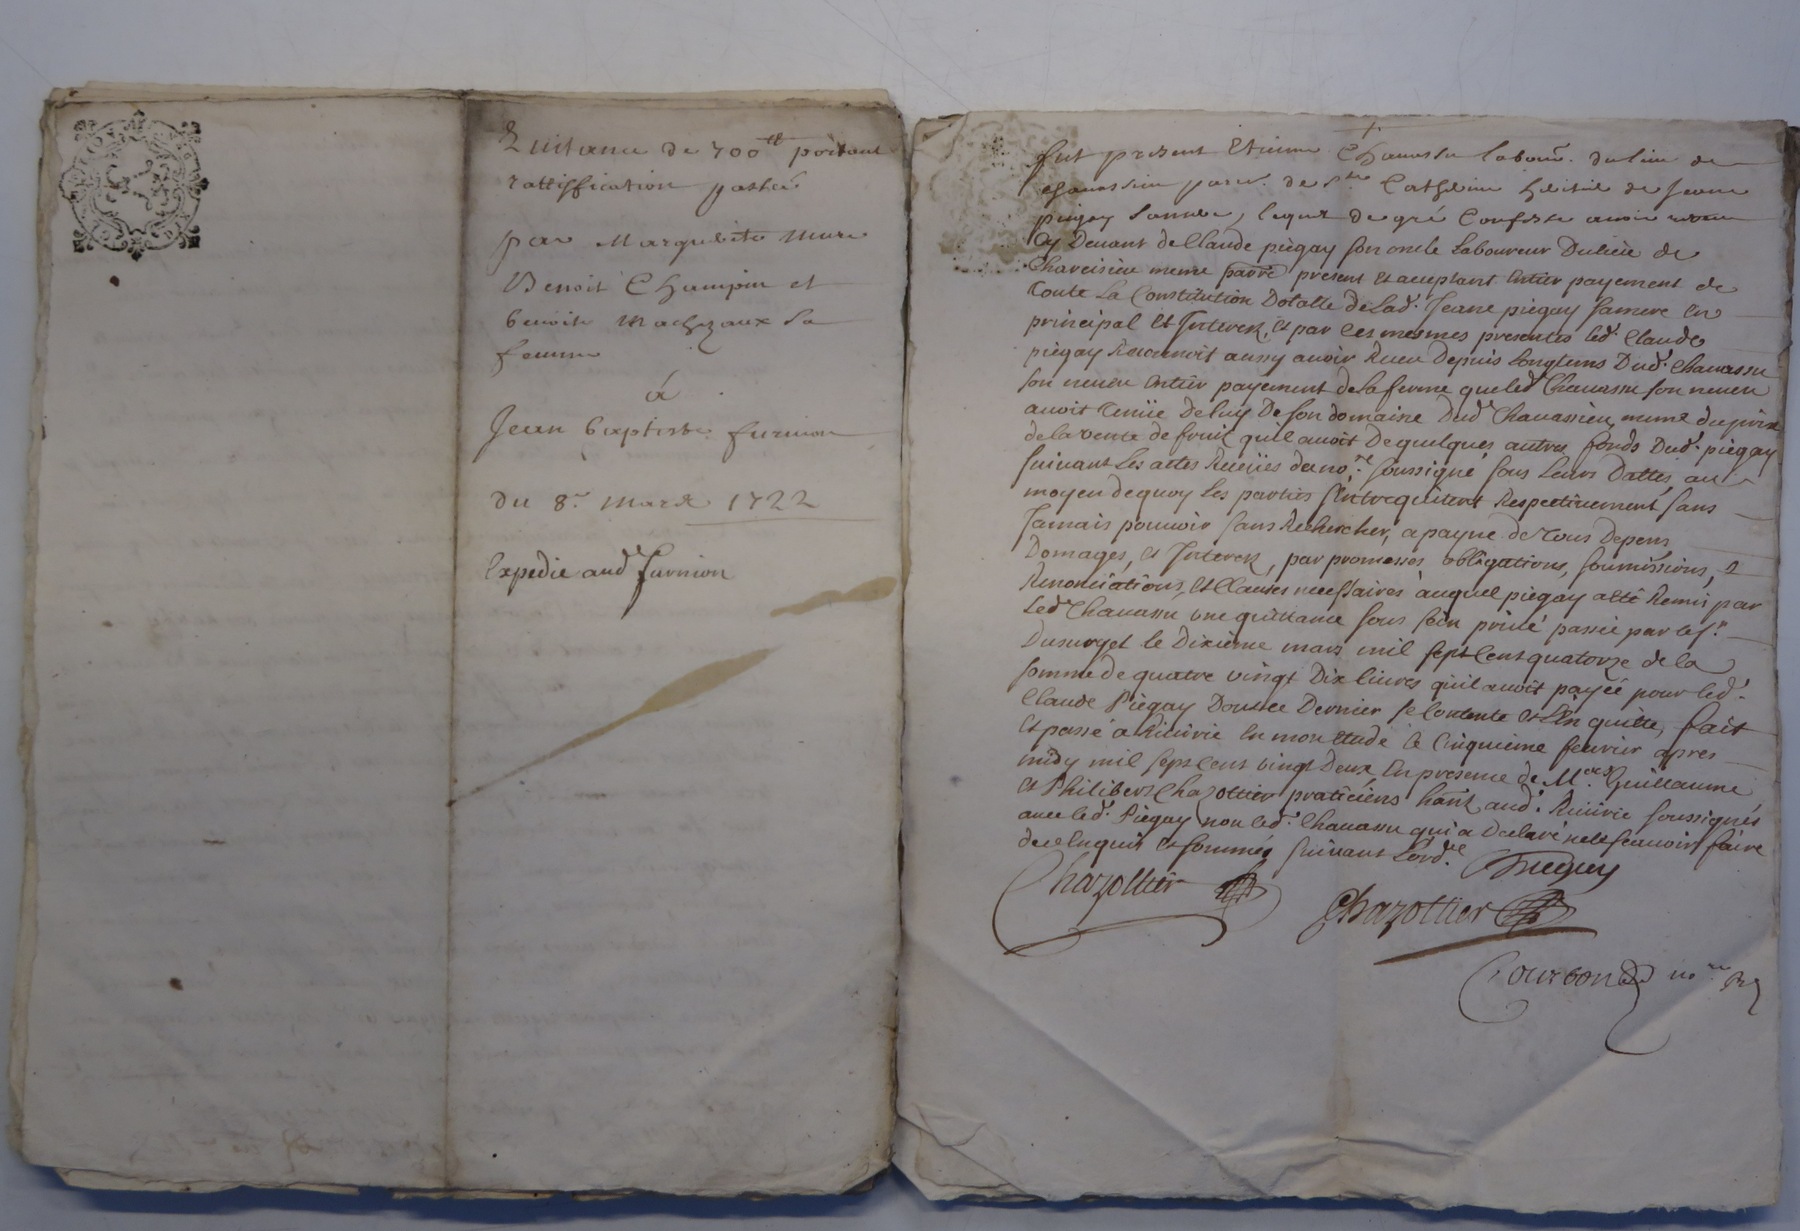 Quittance de 700ᵗᵗ portant
rattiffication passée
par Marguerite Mure
Benoit Champin et
benoite Machizaux sa
femme
à
Jean baptiste furnion
du 8ᵉ mars 1722
Expedié aud furnion
fut present Etienne Chavassu labour. du lieu de
chavassieu parr. de Sᵗᵉ Catherine heritié de Jeanne
piegay sa mere, lequel de gré confesse avoir receu
cy devant de Claude piegay son oncle laboureur du lieu de
meme parre present et aceptant entier payement de
toute la Constitution dotalle de lad. Jeane piegay sa mere en
principal et Interetz, et par ces mesmes presentes led. Claude
piegay Reconnoit aussy avoir Receu depuis longtems dud. Chavassu
son neveu entier payement de la ferme que led Chavassu son neveu
avoit tenüe de luy de son domaine dud Chavassieu, meme du prix
de la vente de fruit qu'il avoit de quelques autres fonds dud. piegay
suivant les actes Receües du noʳᵉ soussigné sous leurs dattes, au
moyen de quoy les parties s'entrequittent Respectivement sans
Jamais pouvoir sans Rechercher, a payne de tous depens
domages, et Interetz, par promesses obligations, soumissions,
Renonciations, et clauses necessaires auquel piegay a eté Remis par
led Chavassu une quittance sous sein privé passée par le sʳ.
Dumoyet le dixieme mars mil sept cent quatorze de la
somme de quatre vingt dix livres qu'il avoit payée pour led.
Claude Piegay dont ce dernier se contente et l'en quitte, fait
et passé a Riverie en mon etude le cinquieme fevrier apres
midy mil sept cent vingt deux en presence de Mʳᵉˢ Guillaume
et Philibert Chazottier praticiens hantz aud. Riverie soussignés
avec led. Piegay non led. Chavassu qui a declaré ne le scavoir faire
de ce enquis et sommés suivant l'ordᶜᵉ
Chazottier
Piegay
Chazottier
Courbon noʳᵉ